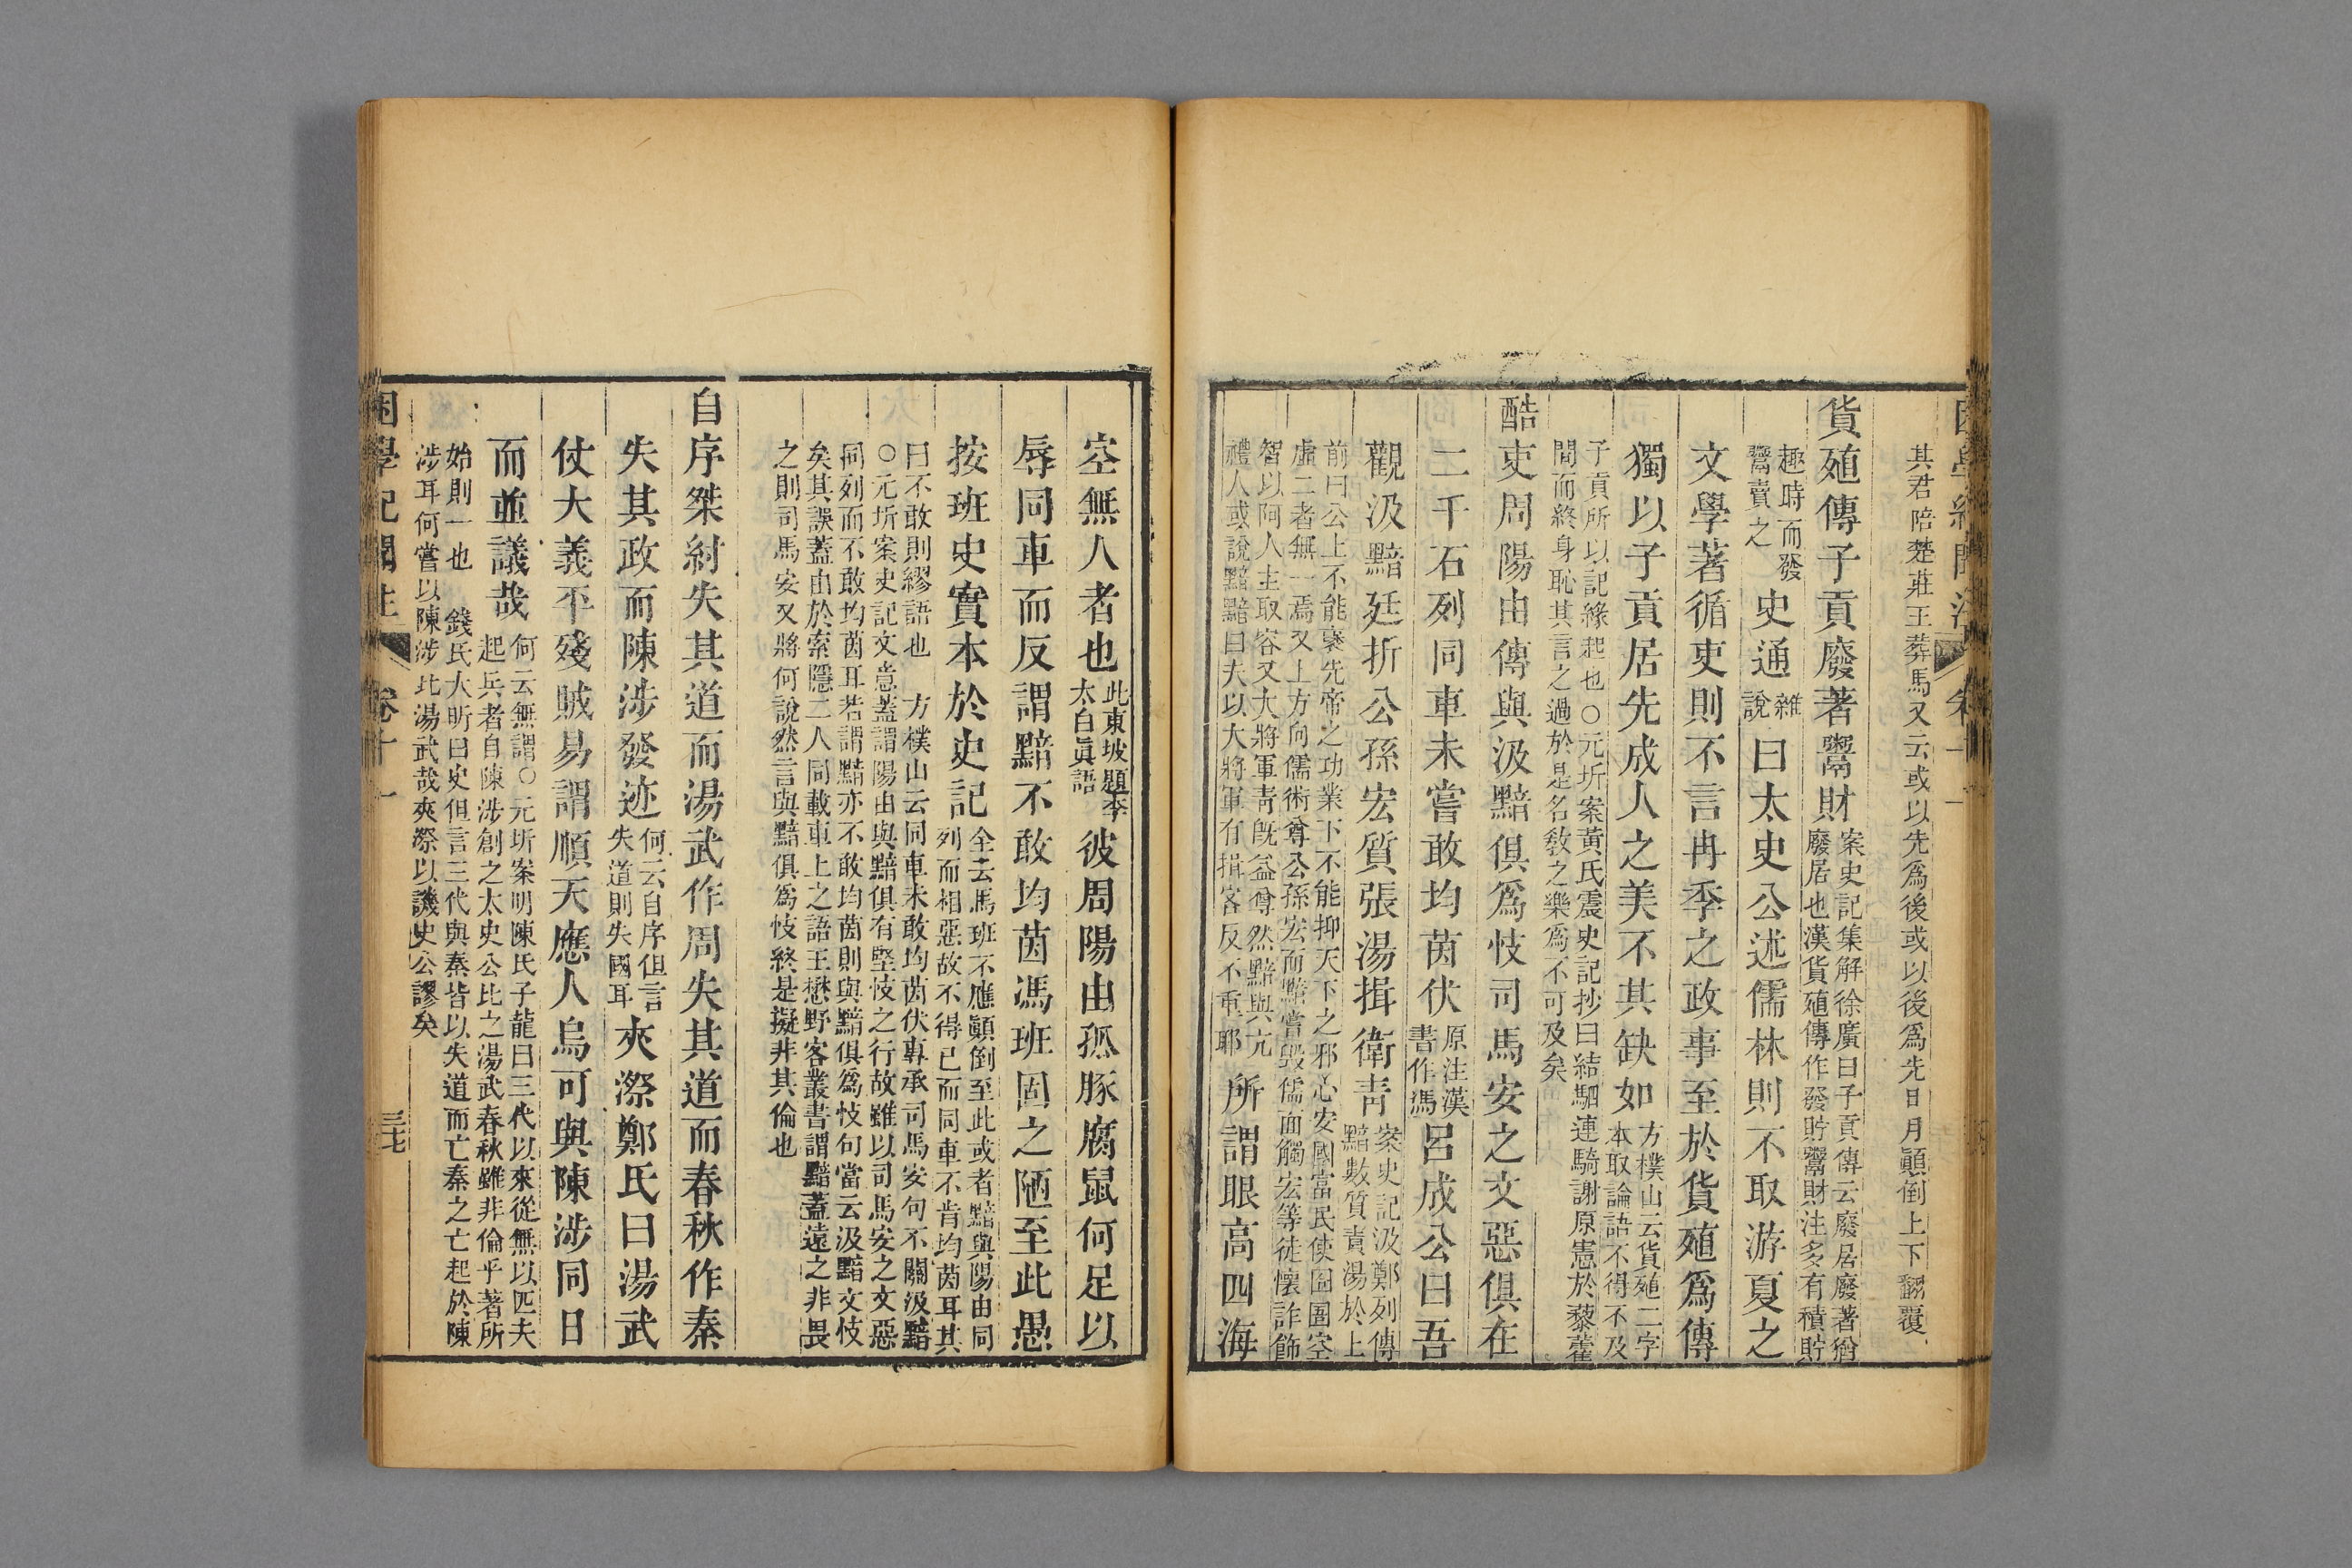 其君陪楚莊王葬馬又云或以先爲後或以後爲先日月顚倒上下翻覆
貨殖傳子貢廢著鬻財案史記集解徐廣曰子貢傳云廢居廢著猶
廢居也漢貨殖傳作發貯鬻財注多有積貯
趣時而發
鬻賣之史通雜
說曰太史公述儒林則不取游夏之
文學著循吏則不言冉季之政事至於貨殖爲傳
獨以子貢居先成人之美不其缺如方樸山云貨殖二字
本取論語不得不及
子貢所以記緣起也○元圻案黃氏震史記抄曰結駟連騎謝原憲於藜藿
間而終身恥其言之過於是名敎之樂爲不可及矣
酷吏周陽由傳與汲黯俱爲忮司馬安之文惡俱在
二千石列同車未嘗敢均茵伏原注漢
書作馮呂成公曰吾
觀汲黯廷折公孫宏質張湯揖衛靑案史記汲鄭列傳
黯數質責湯於上
前曰公上不能襃先帝之功業下不能抑天下之邪心安國富民使囹圄空
虛二者無一焉又上方向儒術尊公孫宏而黯嘗毁儒面觸宏等徒懷詐飾
智以阿人主取容又大將軍靑旣益尊然黯與亢
禮人或說黯黯曰夫以大將軍有揖客反不重耶所謂眼高四海
空無人者也此東坡題李
太白眞語彼周陽由孤豚腐鼠何足以
辱同車而反謂黯不敢均茵馮班固之陋至此愚
按班史實本於史記全云馬班不應顚倒至此或者黯與陽由同
列而相惡故不得已而同車不肯均茵耳其
曰不敢則繆語也　方樸山云同車未敢均茵伏專承司馬安句不關汲黯
○元圻案史記文意蓋謂陽由與黯俱有堅忮之行故雖以司馬安之文惡
同列而不敢均茵耳若謂黯亦不敢均茵則與黯俱爲忮句當云汲黯文忮
矣其誤蓋由於索隱二人同載車上之語王懋野客叢書謂黯蓋遠之非畏
之則司馬安又將何說然言與黯俱爲忮終是擬非其倫也
自序桀紂失其道而湯武作周失其道而春秋作秦
失其政而陳涉發迹何云自序但言
失道則失國耳夾漈鄭氏曰湯武
仗大義平殘賊易謂順天應人烏可與陳涉同日
而並議哉何云無謂○元圻案明陳氏子龍曰三代以來從無以匹夫
起兵者自陳涉創之太史公比之湯武春秋雖非倫乎著所
始則一也　錢氏大昕曰史但言三代與秦皆以失道而亡秦之亡起於陳
涉耳何嘗以陳涉比湯武哉夾漈以譏史公謬矣
困學紀聞注　卷十一　三七